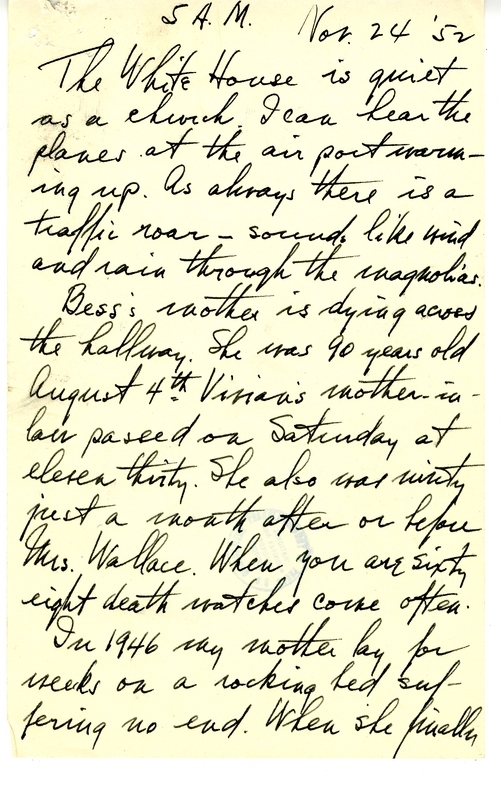 5 A.M. Nov. 24 '52
The White House is quiet
as a church. I can hear the
planes at the air port warm-
ing up. As always there is a
traffic roar - sounds like wind
and rain through the magnolias.
Bess's mother is dying across
the hallway. She was 90 years old
August 4th. Vivian's mother-in-
law passed on Saturday at
eleven thirty. She also was ninety
just a month after or before
Mrs. Wallace. When you are sixty
eight death watches come often.
In 1946 my mother lay for
weeks on a rocking bed suf-
fering no end. When she finally